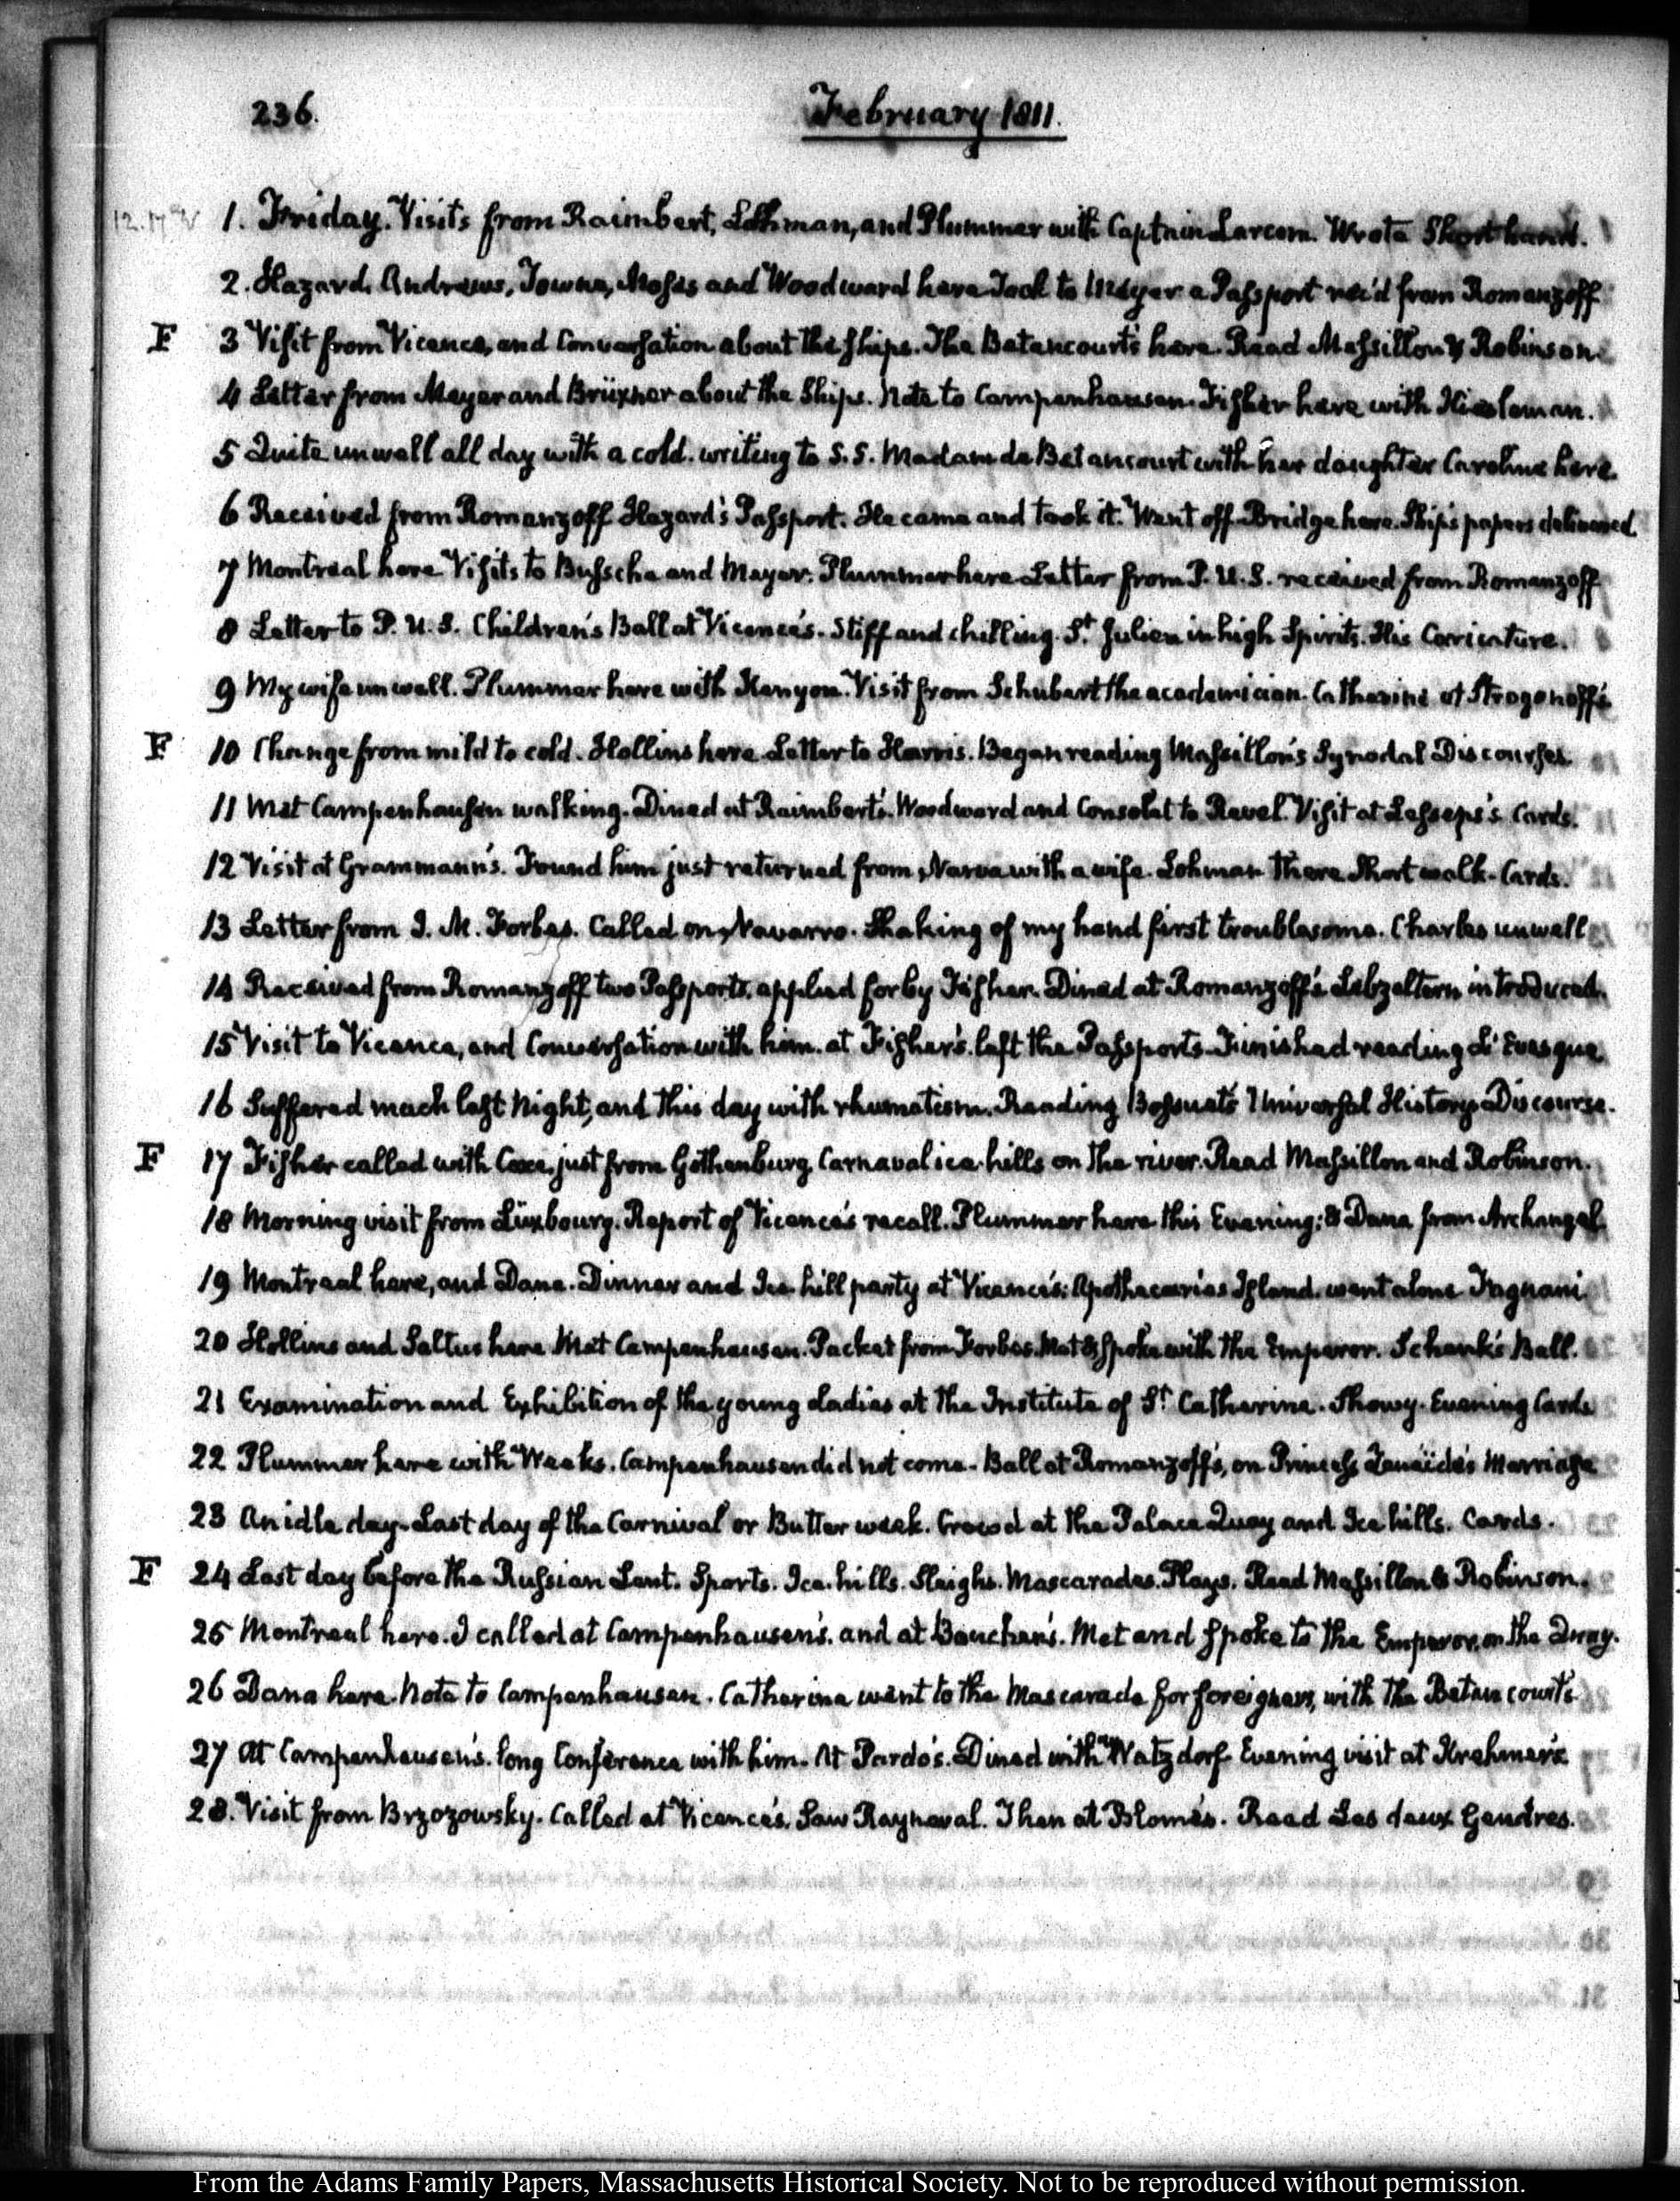 236.
February 1811.
1. Friday. Visits from Raimbert, Lohman, and Plummer with Captain Larcom. Wrote Short hand.
2. Hazard, Andrews, Towne, Moses and Woodward here Took to Meyer a Passport rec'd from Romanzoff
F 3 Visit from Vicence, and Conversation about the ships. The Betancourt's here. Read Massillon & Robinson.
4 Letter from Meyer and Brüxner about the Ships. Note to Campenhausen. Fisher here with
5 Quite unwell all day with a cold. writing to S.S. Madam de Betancourt with her daughter Caroline here.
6 Received from Romanzoff Hazard's Passport. He came and took it. Went off. Bridge here. Ship's papers delivered.
7 Montreal here Visits to Bussche and Mayer. Plummer here Letter from P. U. S. received from Romanzoff
8 Letter to P. U. S. Children's Ball at Vicence's. Stiff and chilling. St. Julien in high Spirits. His Carricature.
9 My wife unwell. Plummer here with Kenyon. Visit from Schubert the academician. Catharine at Strogonoff's
F 10 Change from mild to cold. Hollins here Letter to Harris. Began reading Massillon's Synodal Discourses.
11 Met Campenhausen walking. Dined at Raimbert's. Woodward and Consolat to Revel. Visit at Lesseps's Cards.
12 Visit at Grammann's. Found him just returned from Narva with a wife. Lohman there Short walk. Cards.
13 Letter from J. M. Forbes. Called on Navarro. Shaking of my hand first troublesome. Charles unwell
14 Received from Romanzoff two Passports, applied for by Fisher. Dined at Romanzoff's Lebzeltern introduced.
15 Visit to Vicence, and Conversation with him. at Fisher's. left the Passports. Finished reading L'Evesque
16 Suffered much last Night, and this day with rhumatism. Reading Bossuet's Universal History Discourse.
F 17 Fisher called with Coxe, just from Gothenburg. Carnaval ice-hills on the river. Read Massillon and Robinson.
18 Morning visit from Lüxbourg. Report of Vicence's recall. Plummer here this Evening: & Dana from Archangel.
19 Montreal here, and Dana. Dinner and Ice hill party at Vicence's: Apothecaries Island. went alone Fagnani
20 Hollins and Saltus here Met Campenhausen. Packet from Forbes. Met & Spoke with the Emperor. Schenk's Ball.
21 Examination and Exhibition of the young Ladies at the Institute of St. Catharine. Showy. Evening Cards
22 Plummer here with Weeks. Campenhausen did not come. Ball at Romanzoff's, on Princess Zenaïde's Marriage
23 An idle day. Last day of the Carnival or Butter week. Crowd at the Palace Quay and Ice hills. Cards.
F 24 Last day before the Russian Lent. Sports. Ice-hills. Sleighs. Mascarades. Plays. Read Massillon & Robinson.
25 Montreal here. I called at Campenhausen's. and at Met and Spoke to the Emperor, on the Quay.
26 Dana here. Note to Campenhausen. Catherine went to the Mascarade for foreigners, with the Betancourt's
27 At Campenhausen's. long Conference with him. At Pardo's. Dined with Watzdorf. Evening visit at Krehmer's
28. Visit from Brzozowsky. Called at Vicence's. Saw Rayneval. Then at Blome's. Read Les deux Gendres.
From the Adams Family Papers, Massachusetts Historical Society. Not to be reproduced without permission.